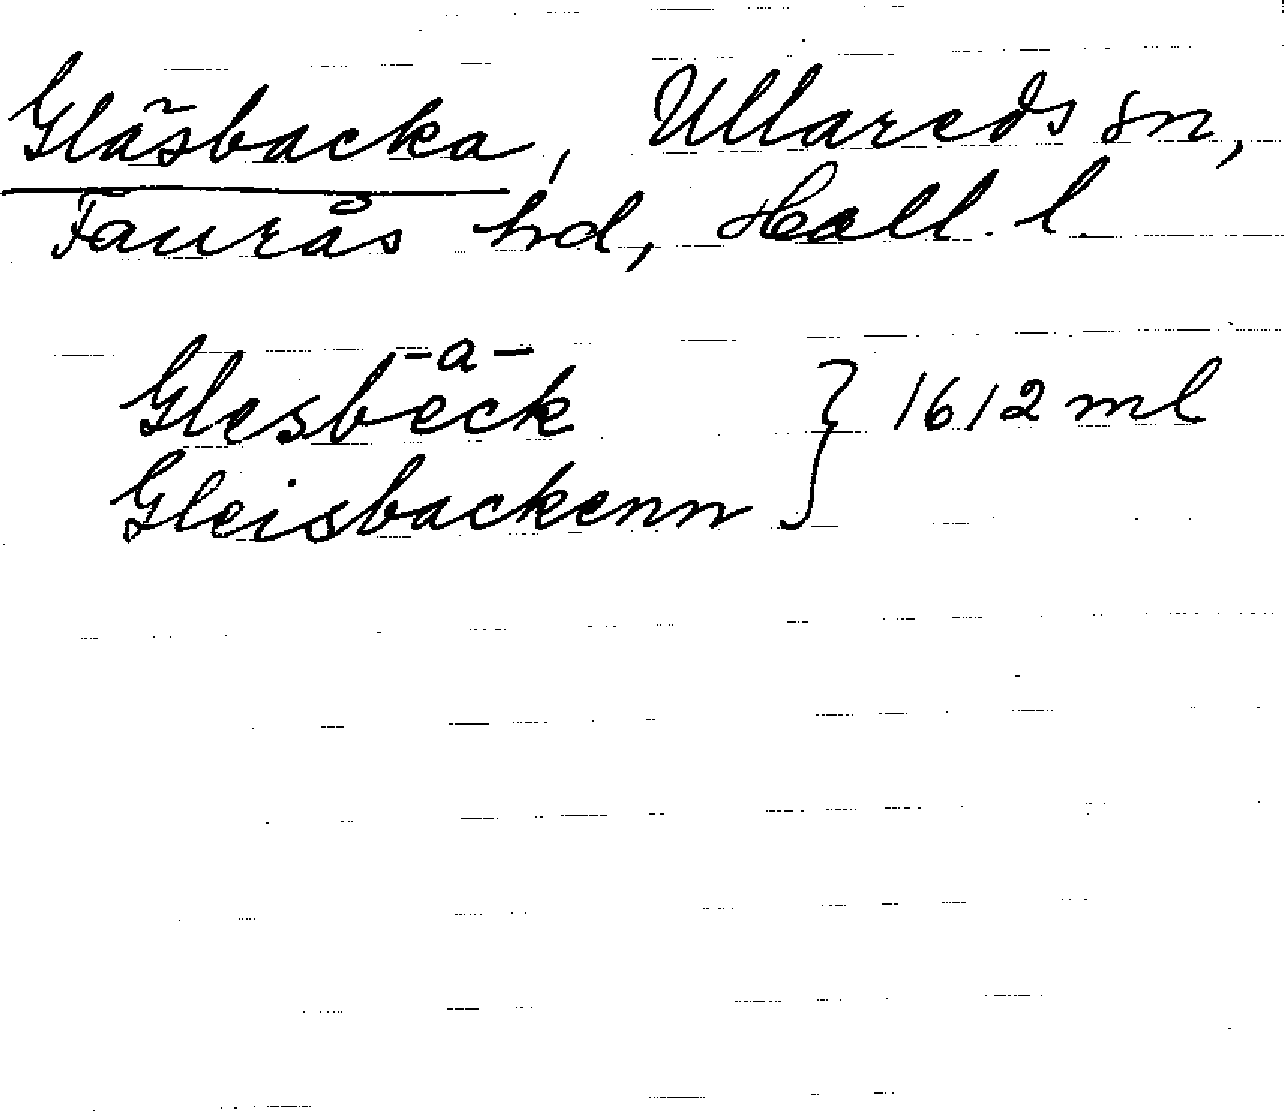 Gläsbacka, Ullareds sn,
Faurås hd, Hall. l.
-a-
Glesbeck } 1612 ml
Gleisbackenn